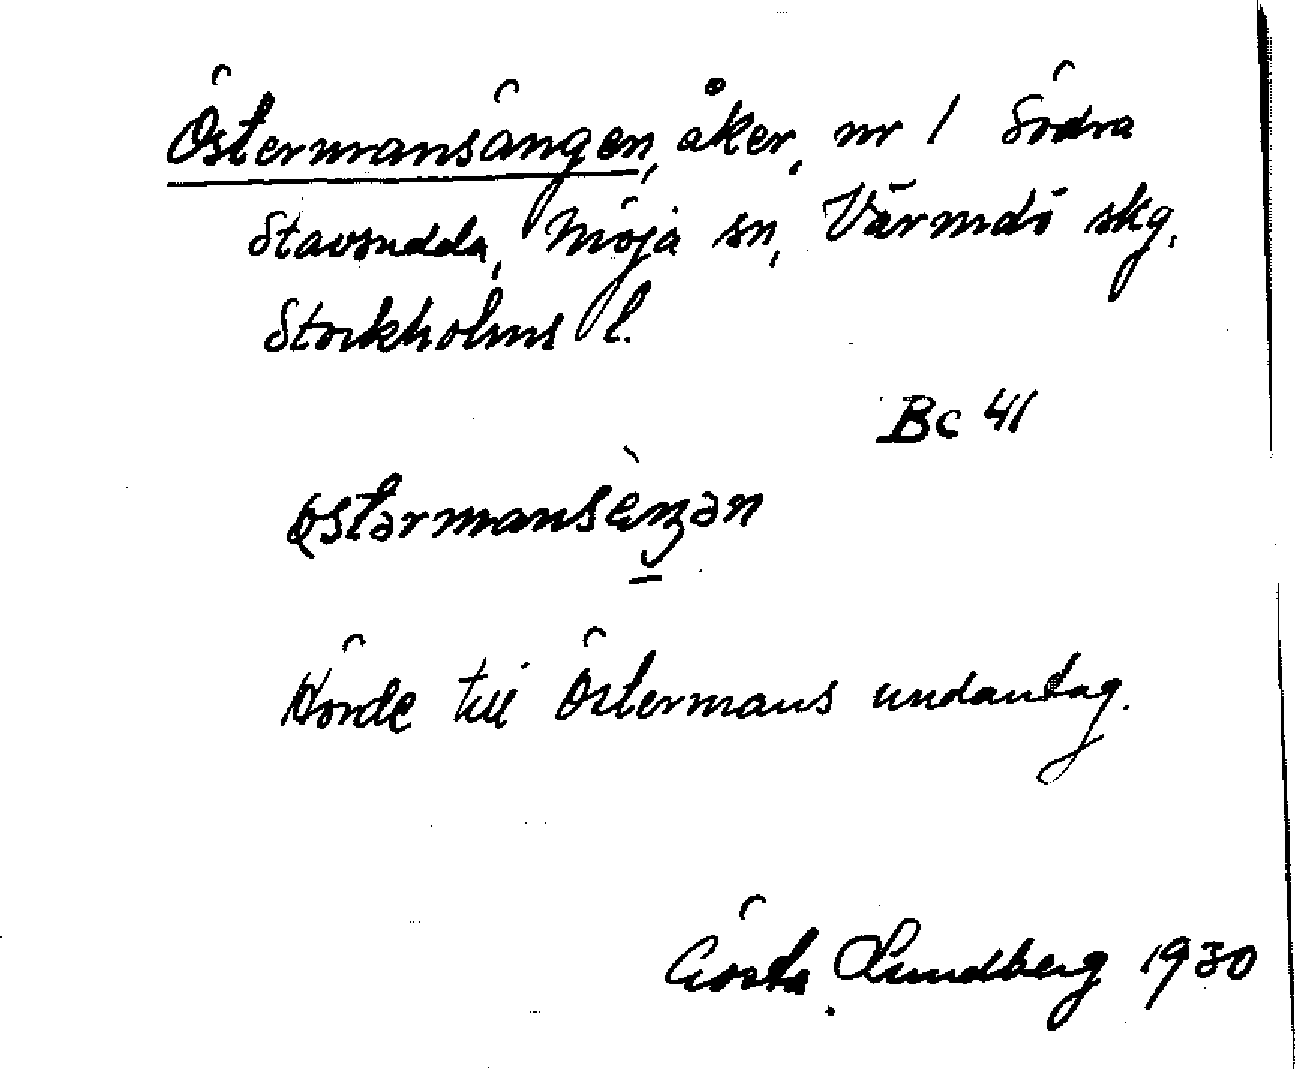 Östermansängen, åker, nr 1 Södra
Stavsudda, Möja sn, Värmdö skg,
Stockholms l.
Bc 41
östərmansèŋən
Hörde till Östermans undantag.
Gösta Lundberg 1930